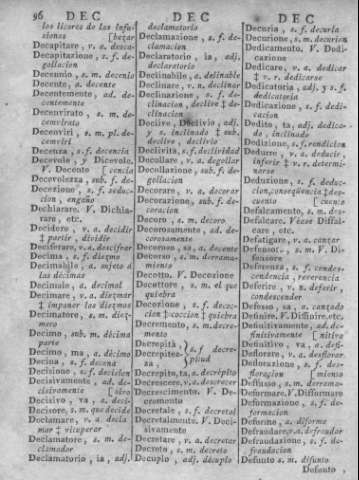 96 DEC DEC DEC
los licores de las infu-
siones [bezar
Decapitare, v. a. desca-
Decapitazione, s. f. de-
gollacion
Decennio, s. m. decenio
Decente, a. decente
Decentemente, ad. de-
centemente
Decenvirato, s. m. de-
cenvirato
Decenviri, s. m. pl. de-
cenviri
Decenza, s. f. decencia
Decevole, y Dicevole.
V. Decente
Decevolezza, sub. f. de-
Decezione, s. f. seduc-
cion, engaño
Dechiarare. V. Dichia-
rare, etc.
Decidere, v. a. decidir
‡ partir, dividir
Deciferare, v. a. descifrar
Decima, s. f. diezmo
Decimabile, a. sujeto á
las décimas
Decimale, a. decimal
Decimare, v. a. diezmar
‡ imponer los diezmos
Decimatore, s. m. diez-
mero
Decimo, sub. m. décima
parte
Decimo, ma, a. décimo
Decina, s. f. decena
Decisione, s. f. decision
Decisivamente, ad. de-
cisivamente
Decisivo, va, a. deci-
Decisore, s. m. que decide
Declamare, v. a. decla-
mar ‡ vituperar
Declamatore, s. m. de-
clamador
Declamatorio, ia, adj.
declamatorio
Declamazione, s. f. de-
clamacion
Declaratorio, ia, adj.
declaratorio
Declinabile, a. delinable
Declinare, v. a. declinar
Declinazione, s. f. de-
clinacion, declive ‡ de-
clinacion
Declive, Declivio, adj.
y s. inclinado ‡ sub.
declive, declivio
Declività, s. f. declividad
Decollare, v. a. degollar
Decollazione, sub. f. de-
gollacion
Decorare, v. a. decorar
Decorazione, sub. f. de-
coracion
Decoro, s. m. decoro
Decorosamente, ad. de-
corosamente
Decoroso, sa, a. decente
Decorso, s. m. derrama-
miento
Decotto. V. Decozione
Decottore, s. m. el que
quiebra
Decozione, s. f. decoc-
cion ‡ coccion ‡ quiebra
Decremento, s. m. decre-
mento
Decrepità,
Decrepitez-
za, } s. f. decre-
pitud
Decrepito, ta, a. decrépito
Decrescere, v. a. decrecer
Decrescimento. V. De-
cremento
Decretale, s. f. decretal
Decretalmente. V. Deci-
sivamente
Decretare, v. a. decretar
Decreto, s. m. decreto
Decuplo, adj. décuplo
Decuria, s. f. decuria
Decurione, s. m. decurion
Dedicamento. V. Dedi-
cazione
Dedicare, v. a. dedicar
‡ v. r. dedicarse
Dedicatoria, adj. y s. f.
dedicatoria
Dedicazione, s. f. dedi-
cacion
Dedito, ta, adj. dedica-
do, inclinado
Dedizione, s. f. rendicion
Dedurre, v. a. deducir,
inferir ‡ v. r. determi-
narse
Deduzione, s. f. deduc-
cion, conseqüencia ‡ des-
cuento
Defalcamento, s. m. des-
Defalcare. Véase Diffal-
care, etc.
Defatigare, v. a. cansar
Defensore, s. m. V. Di-
fensore
Deferenza, s. f. condes-
cendencia, reverencia
Deferire, v. n. deferir,
condescender
Defesso, sa, a. cansado
Definire. V. Difinire, etc.
Definitivamente, ad. de-
finitivamente [nitivo
Definitivo, va, a. defi-
Deflorare, v. a. desflorar.
Deflorazione, s. f. des-
floracion
Deflusso, s. m. derrama-
Deformare. V. Difformare
Deformazione, s. f. de-
formacion
Deforme, a. diforme
Defraudare, v. a. defraudar
Defraudazione, s. f. de-
fraudacion
Defunto s. m. difunto
Defunto,